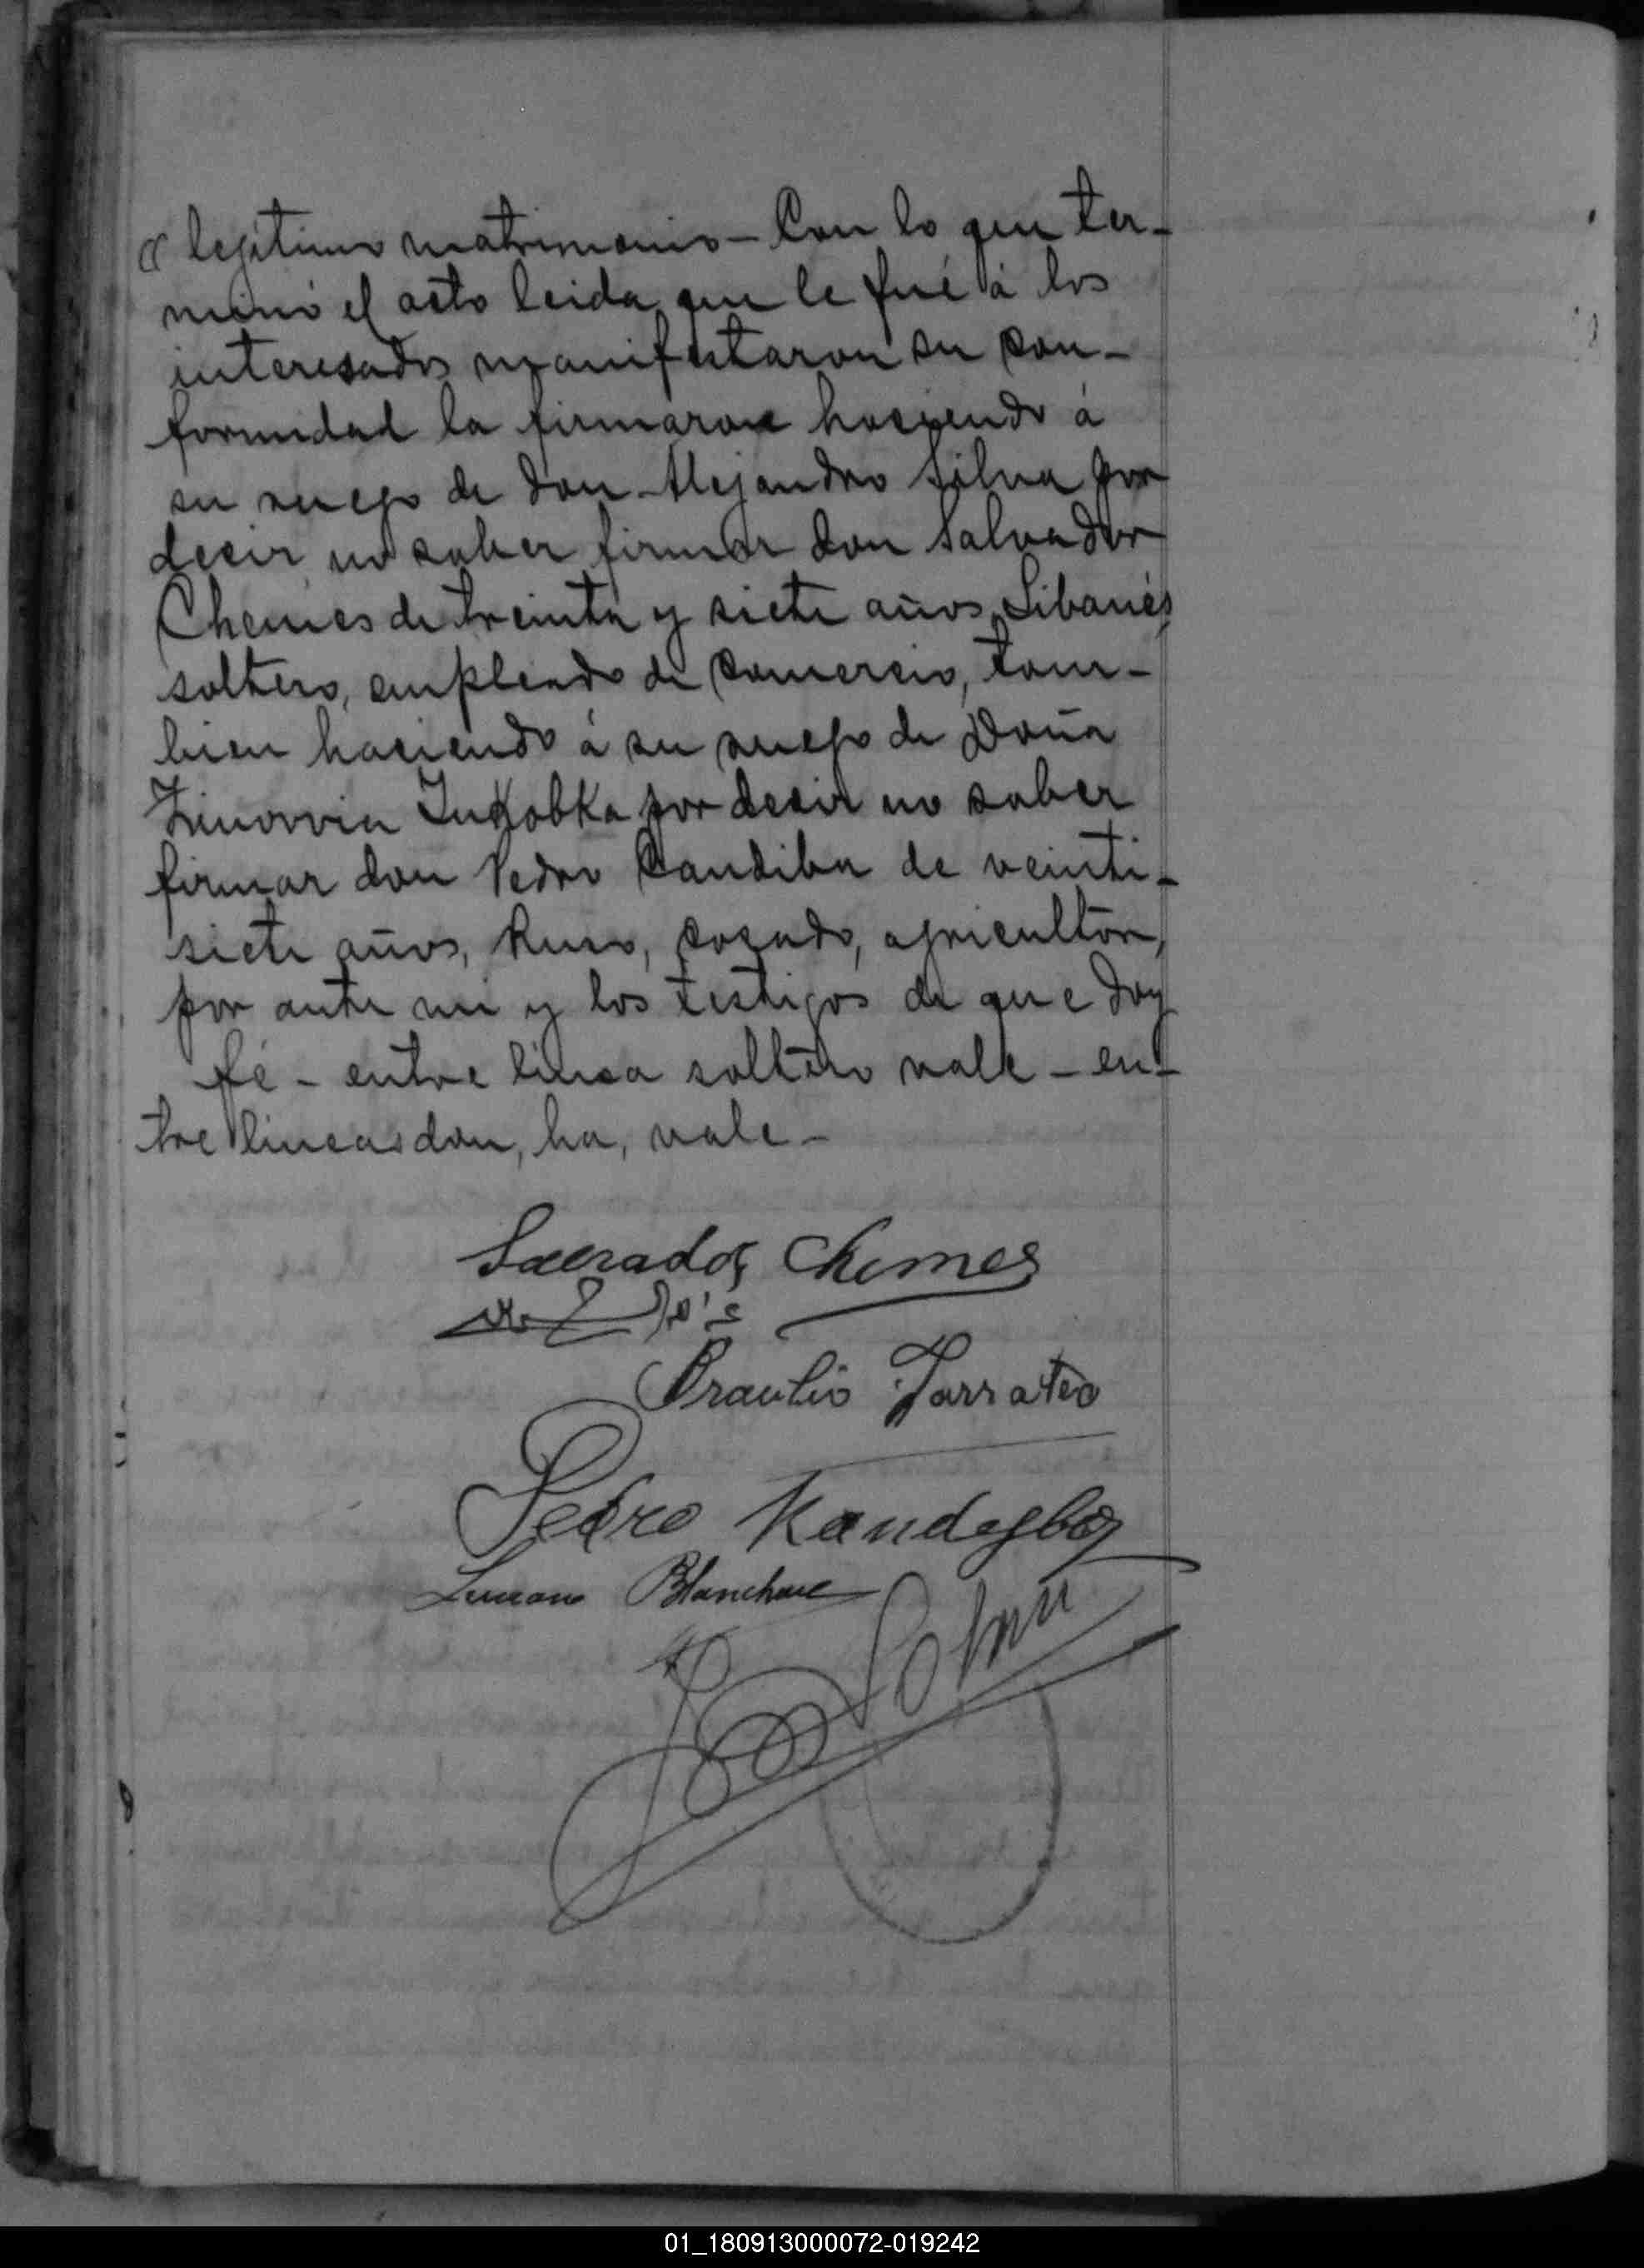 legitimo matrimonio - Con lo que ter-
minó el acto leida que le fué á los
interesados manifestaron su con-
formidad la firmaron haciendo á
su ruego de don Alejandro Silva por
decir no saber firmar don Salvador
Chemes de treinta y siete años, Libanés
soltero, empleado de comercio, tam-
bien haciendo á su ruego de Doña
por decir no saber
firmar don Pedro Candiba de veinti-
siete años, Ruso, casado, agricultor,
por ante mi y los testigos de que doy
fé - entre linea soltero vale - en-
tre lineas don, ha, vale -
Salvador Chemes
Braulio Tarrateo
Pedro Kandegba
Luciano
01_180913000072-019242